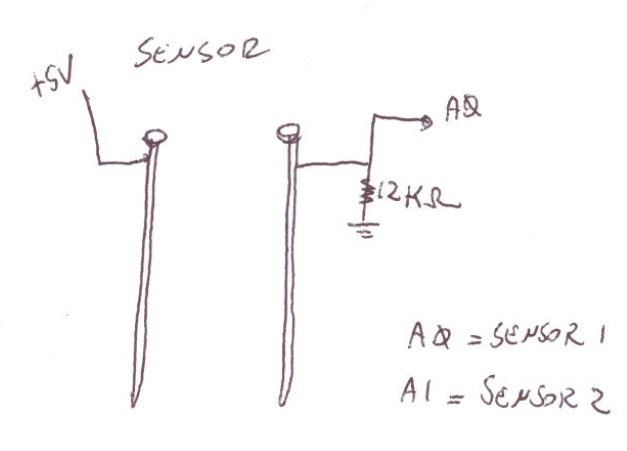 SENSOR
+5V
A0
12KΩ
A0 = SENSOR 1
A1 = SENSOR 2